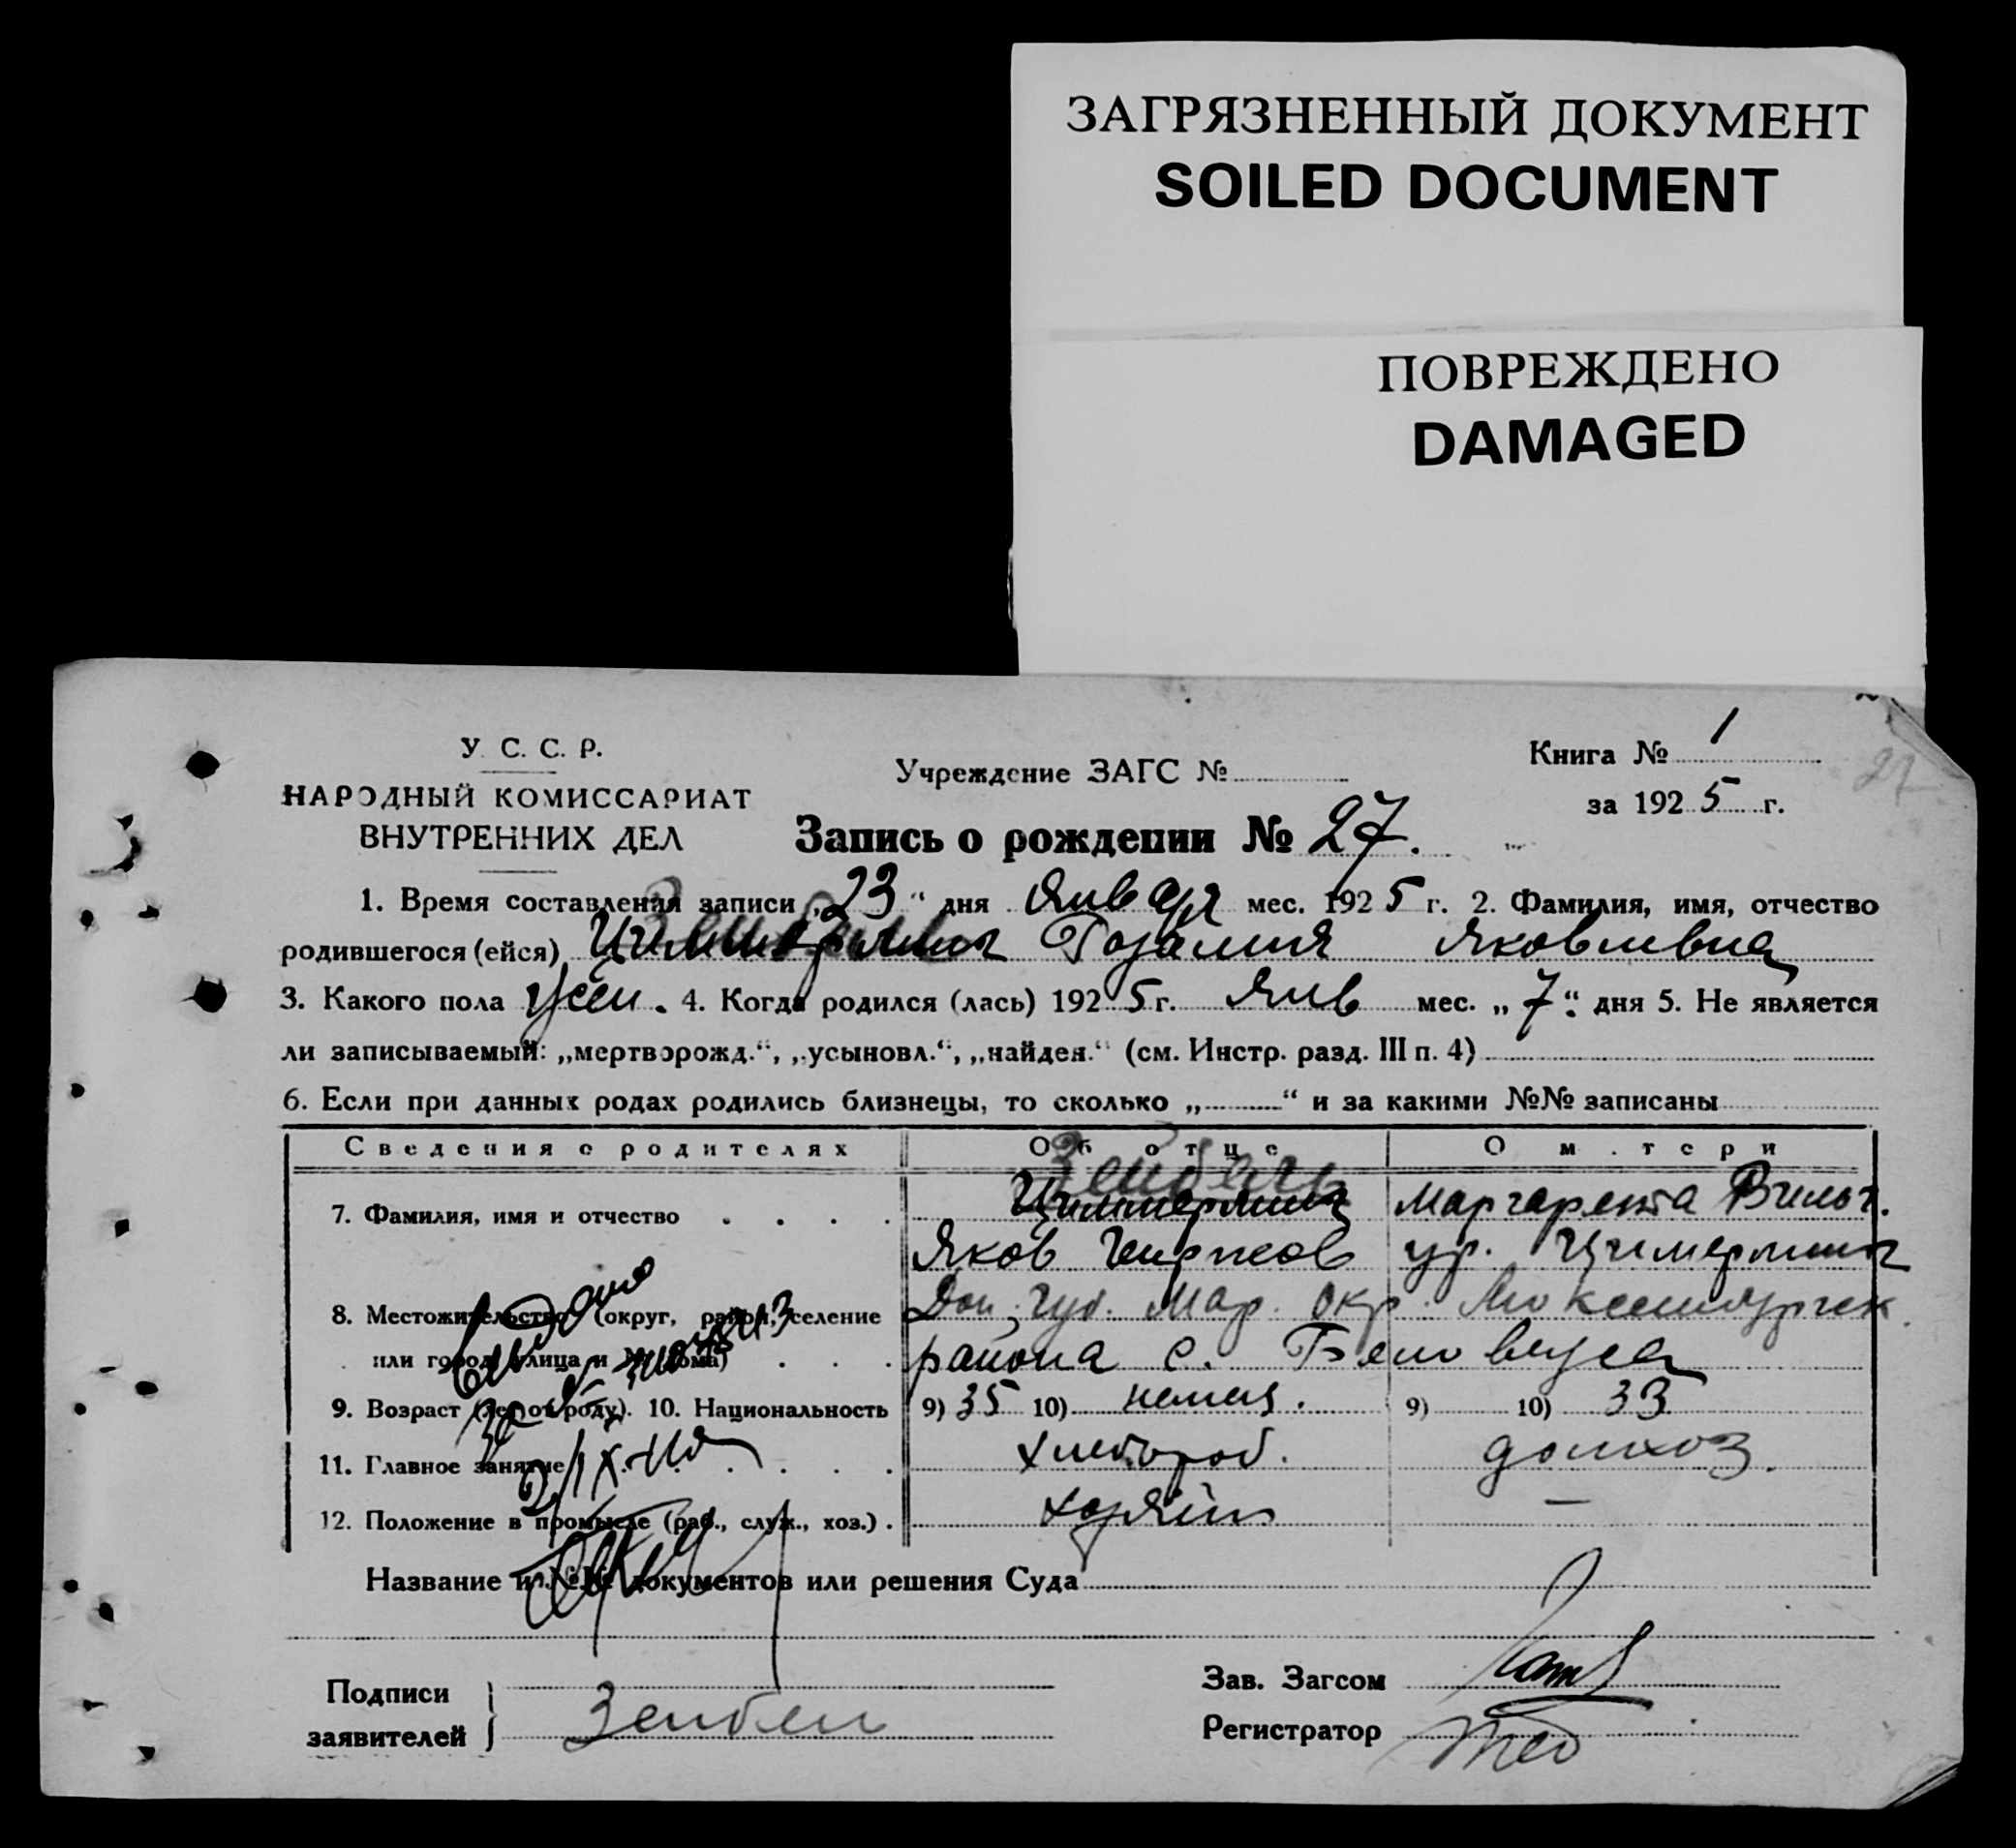 ЗАГРЯЗНЕННЫЙ ДОКУМЕНТ
SOILED DOCUMENT
ПОВРЕЖДЕНО
DAMAGED
У. С. С. Р.
НАРОДНЫЙ КОМИССАРИАТ
ВНУТРЕННИХ ДЕЛ
Учреждение ЗАГС №
Книга № 1
за 1925 г.
27
Запись о рождении № 27.
1. Время составления записи „23“ дня Января мес. 1925 г. 2. Фамилия, имя, отчество
родившегося (ейся) Циммерман Розалия Яковлевна
3. Какого пола жен. 4. Когда родился (лась) 1925 г. Янв мес. „7“ дня 5. Не является
ли записываемый: „мертворожд.“, „усыновл.“, „найден.“ (см. Инстр. разд. III п. 4)
6. Если при данных родах родились близнецы, то сколько „ “ и за какими №№ записаны
Сведения о родителях Об отце О м.тери
7. Фамилия, имя и отчество Циммерман Маргарета Вильг.
Яков ур. Цимерман
8. Местожительство (округ, район, селение Дон. губ. Мар. окр. Люксембургск.
или город, улица и № дома) района с.
9. Возраст (лет от роду). 10. Национальность 9) 35 10) немец. 9) 10) 33
11. Главное занятие хлебороб. домхоз.
12. Положение в промысле (раб., служ., хоз.) хозяин —
Название и №№ документов или решения Суда
Подписи
заявителей Зейбель
Зав. Загсом
Регистратор